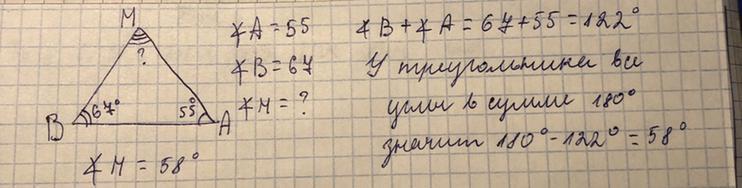 M
?
B 67° 55° A
∢M = 58°
∢A = 55
∢B = 67
∢M = ?
∢B + ∢A = 67 + 55 = 122°
У треугольника все
углы в сумме 180°
значит 180° - 122° = 58°